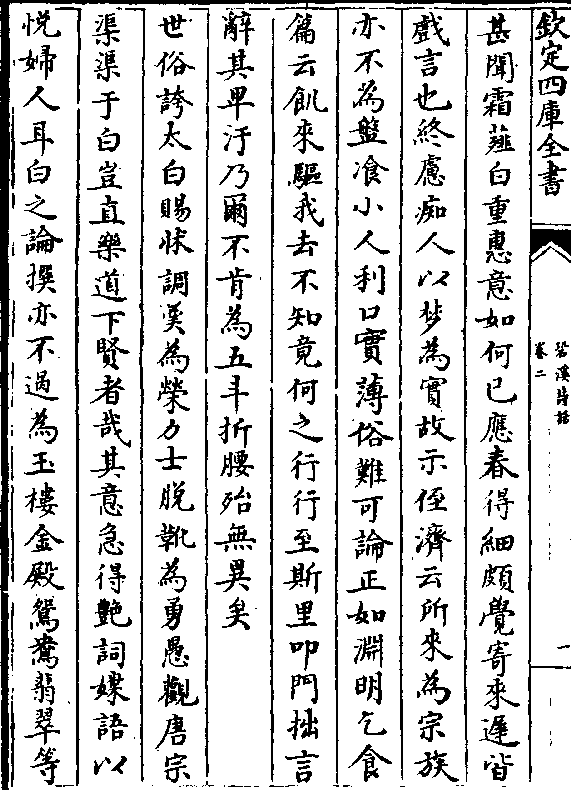 欽定四庫全書
䂬溪詩話
卷二
一
甚聞霜薤白重惠意如何已應春得細頗覺寄來遲皆
戲言也終慮癡人以夢為實故示侄濟云所來為宗族
亦不為盤飧小人利口實薄俗難可論正如淵明乞食
篇云飢來驅我去不知竟何之行行至斯里叩門拙言
辭其卑汙乃爾不肯為五斗折腰殆無異矣
世俗誇太白賜牀調羮為榮力士脱靴為勇愚觀唐宗
渠渠于白豈直樂道下賢者哉其意急得艶詞媟語以
悦婦人耳白之論撰亦不過為玉樓金殿鴛鴦翡翠等